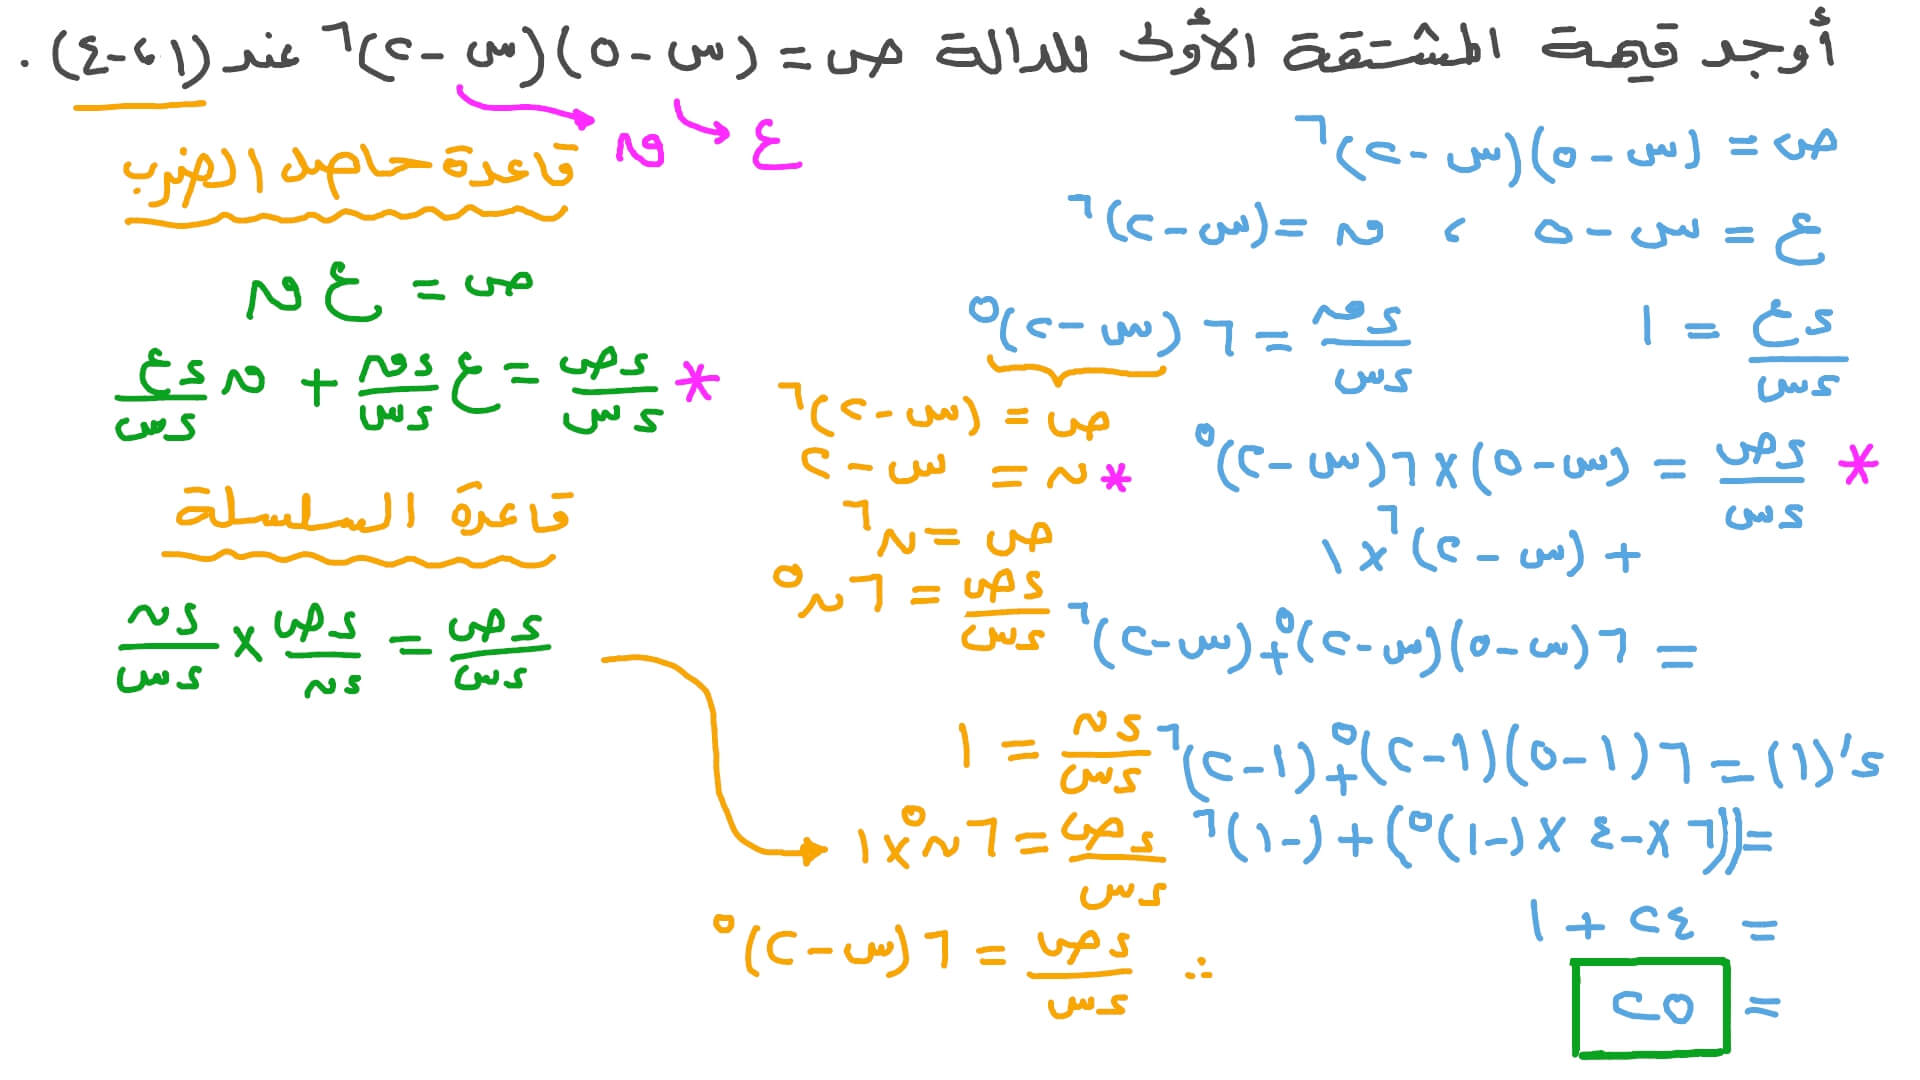 أوجد قيمة المشتقة الأولى للدالة ص = (س - ٥)(س - ٢)^٦ عند (١، -٤).
ع
ن
ص = (س - ٥)(س - ٢)^٦
ع = س - ٥ ، ن = (س - ٢)^٦
دع/دس = ١
دن/دس = ٦(س - ٢)^٥
* دص/دس = (س - ٥) × ٦(س - ٢)^٥
+ (س - ٢)^٦ × ١
= ٦(س - ٥)(س - ٢)^٥ + (س - ٢)^٦
د'(١) = ٦(١ - ٥)(١ - ٢)^٥ + (١ - ٢)^٦
= ((٦ × -٤ × (-١)^٥) + (-١)^٦
= ٢٤ + ١
= ٢٥
ص = (س - ٢)^٦
* ن = س - ٢
ص = ن^٦
دص/دس = ٦ن^٥
دن/دس = ١
دص/دس = ٦ن^٥ × ١
∴ دص/دس = ٦(س - ٢)^٥
قاعدة حاصل الضرب
ص = ع ن
* دص/دس = ع دن/دس + ن دع/دس
قاعدة السلسلة
دص/دس = دص/دن × دن/دس